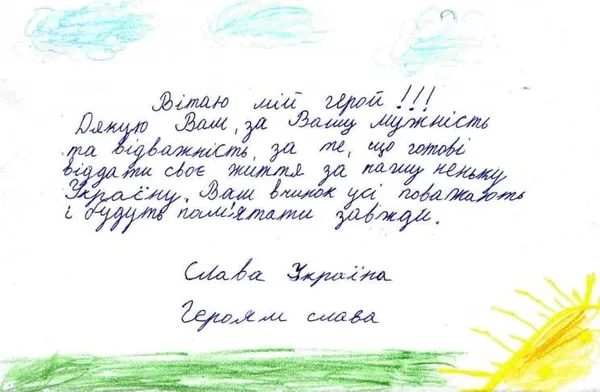 Вітаю мій герой!!!
Дякую Вам, за Вашу мужність
та відважність, за те, що готові
віддати своє життя за нашу неньку
Україну. Ваш вчинок усі поважають
і будуть пам'ятати завжди.
Слава Україна
Героям слава